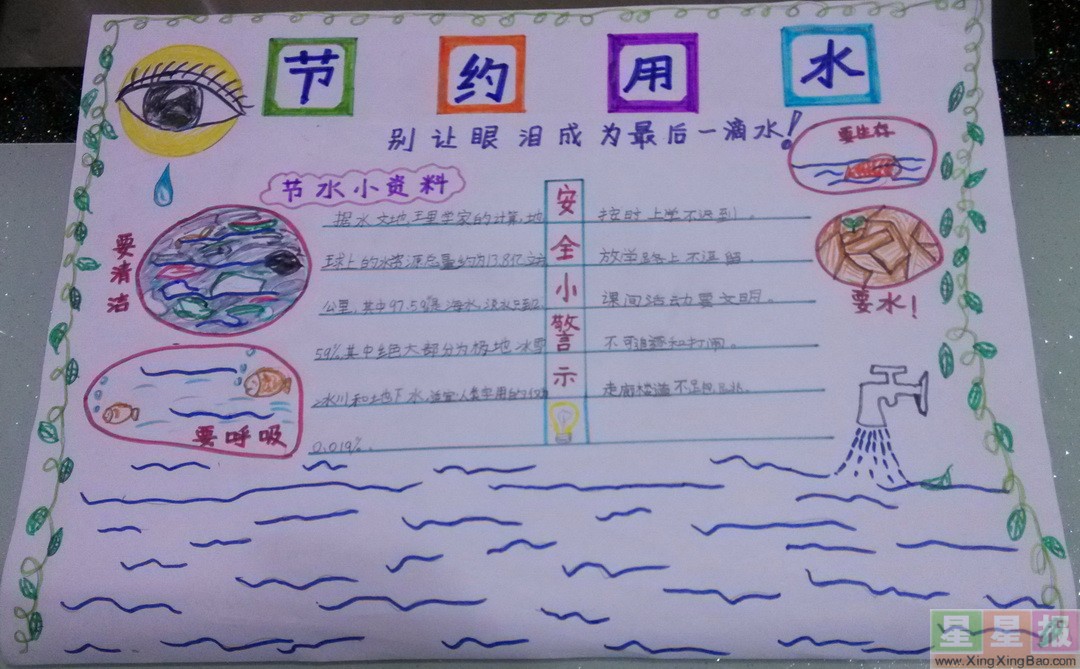 节 约 用 水
别让眼泪成为最后一滴水!
要生存
节水小资料
安全小警示
要清洁
要水!
要呼吸
据水文地理学家的计算,地
球上的水资源总量约为13.8亿立方
公里,其中97.5%是海水,淡水只占2.
5%,其中绝大部分为极地冰雪
冰川和地下水,适宜人类享用的仅为
0.01%.
按时上学不迟到。
放学路上不逗留。
课间活动要文明。
不可追逐和打闹。
走廊楼道不
星星报
www.XingXingBao.com